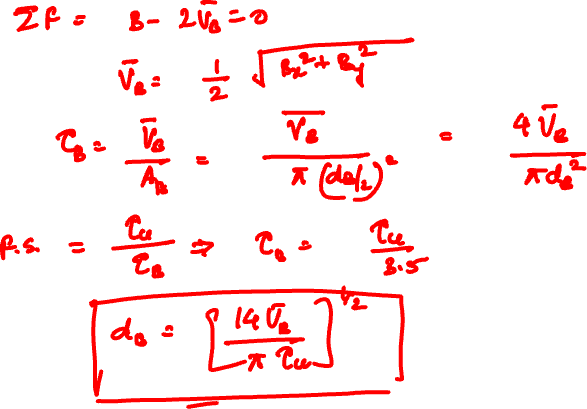 ΣF = B - 2V̄_B = 0
V̄_B = 1/2 √(B_x² + B_y²)
τ_B = V̄_B / A_B = V̄_B / π(d_B/2)² = 4V̄_B / πd_B²
F.S. = τ_u / τ_B ⇒ τ_B = τ_u / 3.5
d_B = [14V̄_B / π τ_u]^1/2